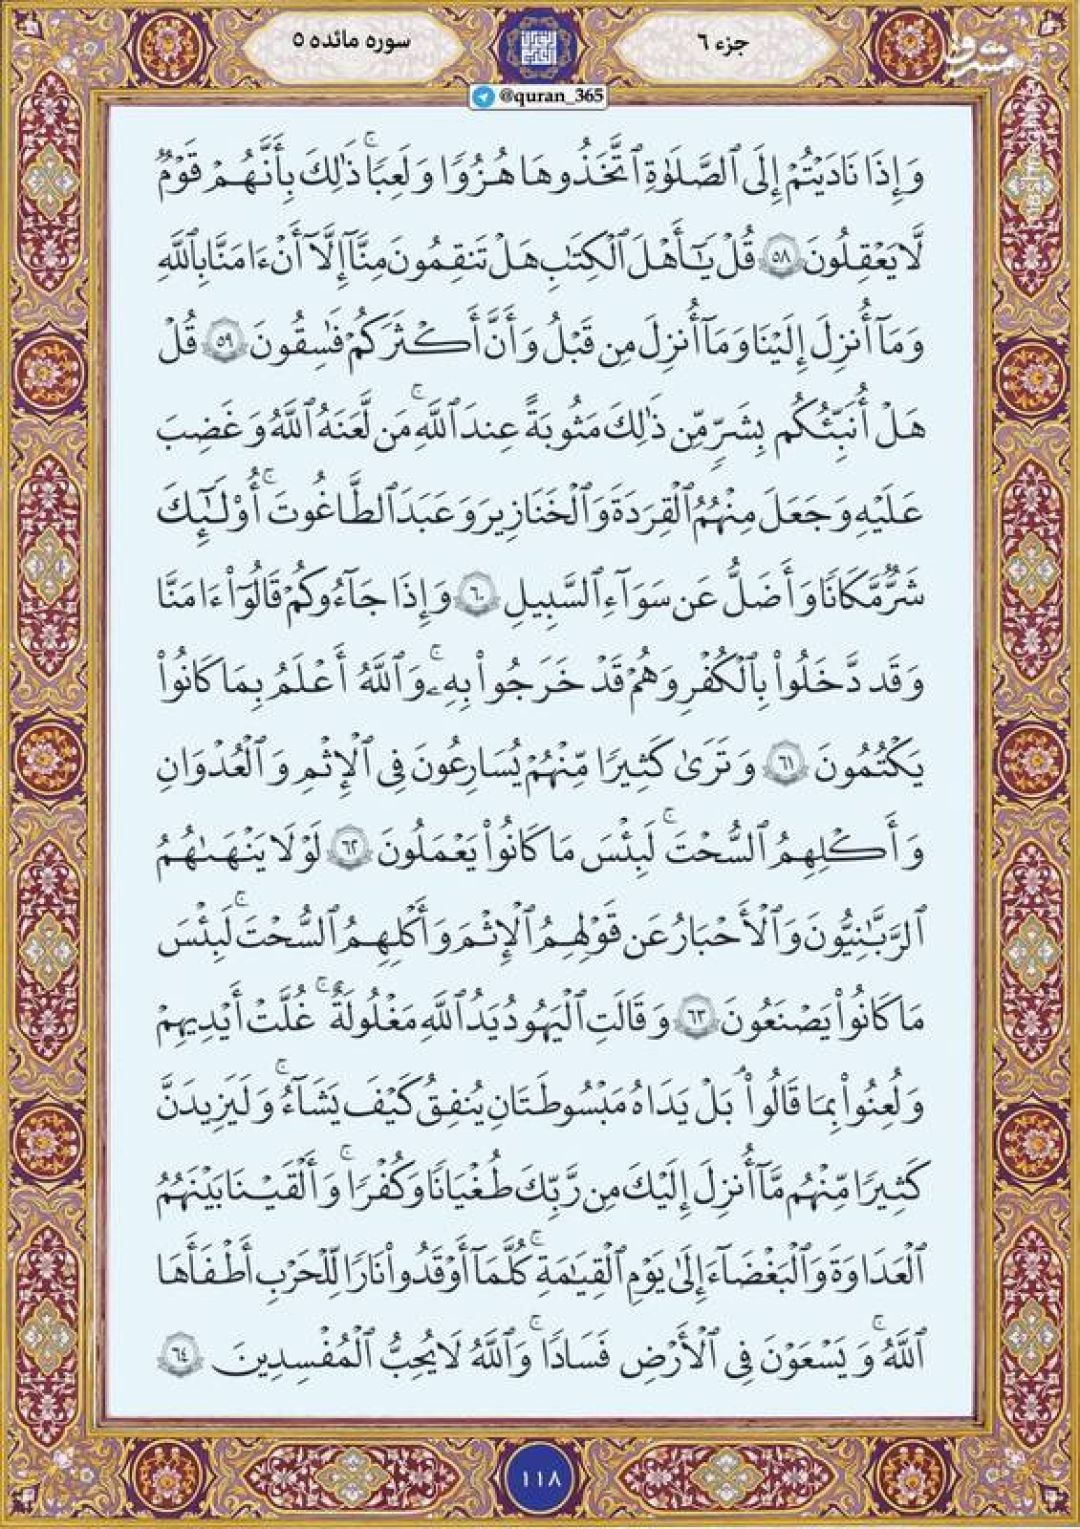 جزء ۶
سوره مائده ۵
@quran_365
وَإِذَا نَادَيْتُمْ إِلَى ٱلصَّلَوٰةِ ٱتَّخَذُوهَا هُزُوًا وَلَعِبًا ۚ ذَٰلِكَ بِأَنَّهُمْ قَوْمٌ
لَّا يَعْقِلُونَ ٥٨ قُلْ يَـٰٓأَهْلَ ٱلْكِتَـٰبِ هَلْ تَنقِمُونَ مِنَّآ إِلَّآ أَنْ ءَامَنَّا بِٱللَّهِ
وَمَآ أُنزِلَ إِلَيْنَا وَمَآ أُنزِلَ مِن قَبْلُ وَأَنَّ أَكْثَرَكُمْ فَـٰسِقُونَ ٥٩ قُلْ
هَلْ أُنَبِّئُكُم بِشَرٍّ مِّن ذَٰلِكَ مَثُوبَةً عِندَ ٱللَّهِ ۚ مَن لَّعَنَهُ ٱللَّهُ وَغَضِبَ
عَلَيْهِ وَجَعَلَ مِنْهُمُ ٱلْقِرَدَةَ وَٱلْخَنَازِيرَ وَعَبَدَ ٱلطَّـٰغُوتَ ۚ أُو۟لَـٰٓئِكَ
شَرٌّ مَّكَانًا وَأَضَلُّ عَن سَوَآءِ ٱلسَّبِيلِ ٦٠ وَإِذَا جَآءُوكُمْ قَالُوٓا۟ ءَامَنَّا
وَقَد دَّخَلُوا۟ بِٱلْكُفْرِ وَهُمْ قَدْ خَرَجُوا۟ بِهِۦ ۚ وَٱللَّهُ أَعْلَمُ بِمَا كَانُوا۟
يَكْتُمُونَ ٦١ وَتَرَىٰ كَثِيرًا مِّنْهُمْ يُسَارِعُونَ فِى ٱلْإِثْمِ وَٱلْعُدْوَانِ
وَأَكْلِهِمُ ٱلسُّحْتَ ۚ لَبِئْسَ مَا كَانُوا۟ يَعْمَلُونَ ٦٢ لَوْلَا يَنْهَىٰهُمُ
ٱلرَّبَّـٰنِيُّونَ وَٱلْأَحْبَارُ عَن قَوْلِهِمُ ٱلْإِثْمَ وَأَكْلِهِمُ ٱلسُّحْتَ ۚ لَبِئْسَ
مَا كَانُوا۟ يَصْنَعُونَ ٦٣ وَقَالَتِ ٱلْيَهُودُ يَدُ ٱللَّهِ مَغْلُولَةٌ ۚ غُلَّتْ أَيْدِيهِمْ
وَلُعِنُوا۟ بِمَا قَالُوا۟ ۘ بَلْ يَدَاهُ مَبْسُوطَتَانِ يُنفِقُ كَيْفَ يَشَآءُ ۚ وَلَيَزِيدَنَّ
كَثِيرًا مِّنْهُم مَّآ أُنزِلَ إِلَيْكَ مِن رَّبِّكَ طُغْيَانًا وَكُفْرًا ۚ وَأَلْقَيْنَا بَيْنَهُمُ
ٱلْعَدَاوَةَ وَٱلْبَغْضَآءَ إِلَىٰ يَوْمِ ٱلْقِيَـٰمَةِ ۚ كُلَّمَآ أَوْقَدُوا۟ نَارًا لِّلْحَرْبِ أَطْفَأَهَا
ٱللَّهُ ۚ وَيَسْعَوْنَ فِى ٱلْأَرْضِ فَسَادًا ۚ وَٱللَّهُ لَا يُحِبُّ ٱلْمُفْسِدِينَ ٦٤
١١٨